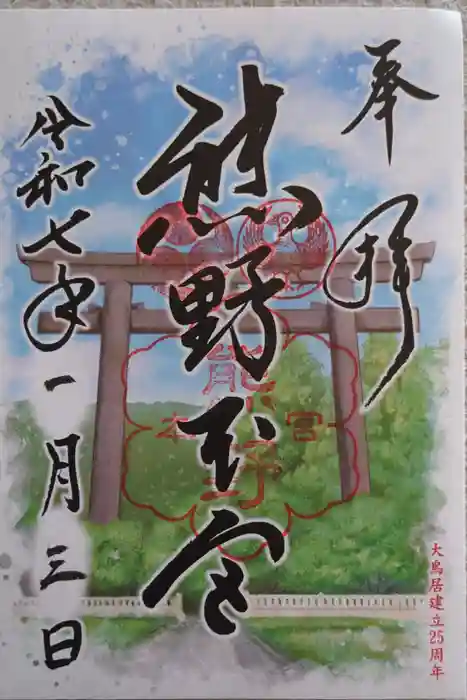 奉拝
熊野本宮
令和七年一月三日
大鳥居建立25周年